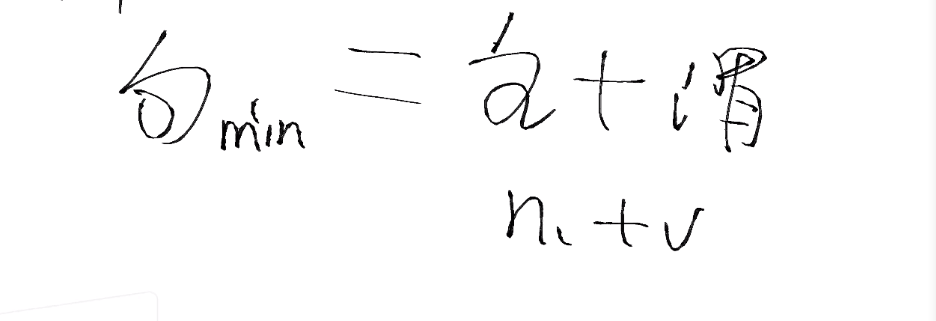 句min = 主+谓
n.+v